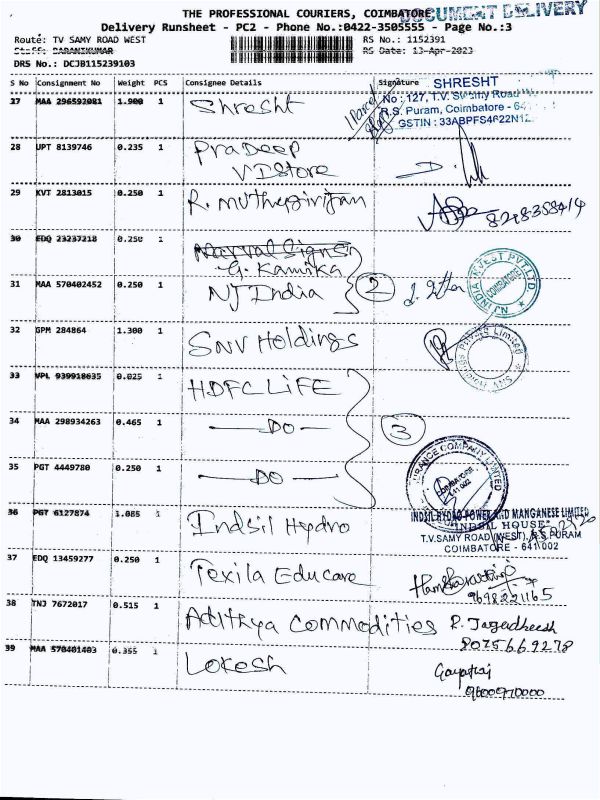 THE PROFESSIONAL COURIERS, COIMBATORE
DOCUMENT DELIVERY
Delivery Runsheet - PC2 - Phone No.:0422-3505555 - Page No.:3
Route: TV SAMY ROAD WEST RS No.: 1152391
Staff: DARANIKUMAR RS Date: 13-Apr-2023
DRS No.: DCJB115239103
S No Consignment No Weight PCS Consignee Details Signature
27 MAA 296592081 1.900 1 Shresht
SHRESHT
No : 127, T.V. Swamy Road
R.S. Puram, Coimbatore - 64
GSTIN : 33ABPFS4622N1Z
28 UPT 8139746 0.235 1 Pradeep
VDStore
29 KVT 2813015 0.250 1 R. Muthugirijan
30 EDQ 23237218 0.250 Narval Signs
G. Kamika
31 MAA 570402452 0.250 1 NJ India 2
NJ INDIA INVEST PVT LTD
COIMBATORE
32 GPM 284864 1.300 1 SNV Holdings
SNV Holdings Private Limited
33 VPL 939918635 0.025 1 HDFC LIFE
34 MAA 298934263 0.465 1 —DO— 3
35 PGT 4449780 0.250 1 —DO—
COMPANY LIMITED
COIMBATORE
641 002
36 PGT 6127874 1.085 1 Indsil Hydro
INDSIL HYDRO POWER AND MANGANESE LIMITED
"INDSIL HOUSE"
T.V.SAMY ROAD (WEST), R.S.PURAM
COIMBATORE - 641 002
37 EDQ 13459277 0.250 1 Texila Educare
9698221165
38 TNJ 7672017 0.515 1 Adithya Commodities R. Jagadheesh
8075669278
39 MAA 570401403 0.355 1 Lokesh Gayatri
9600970000